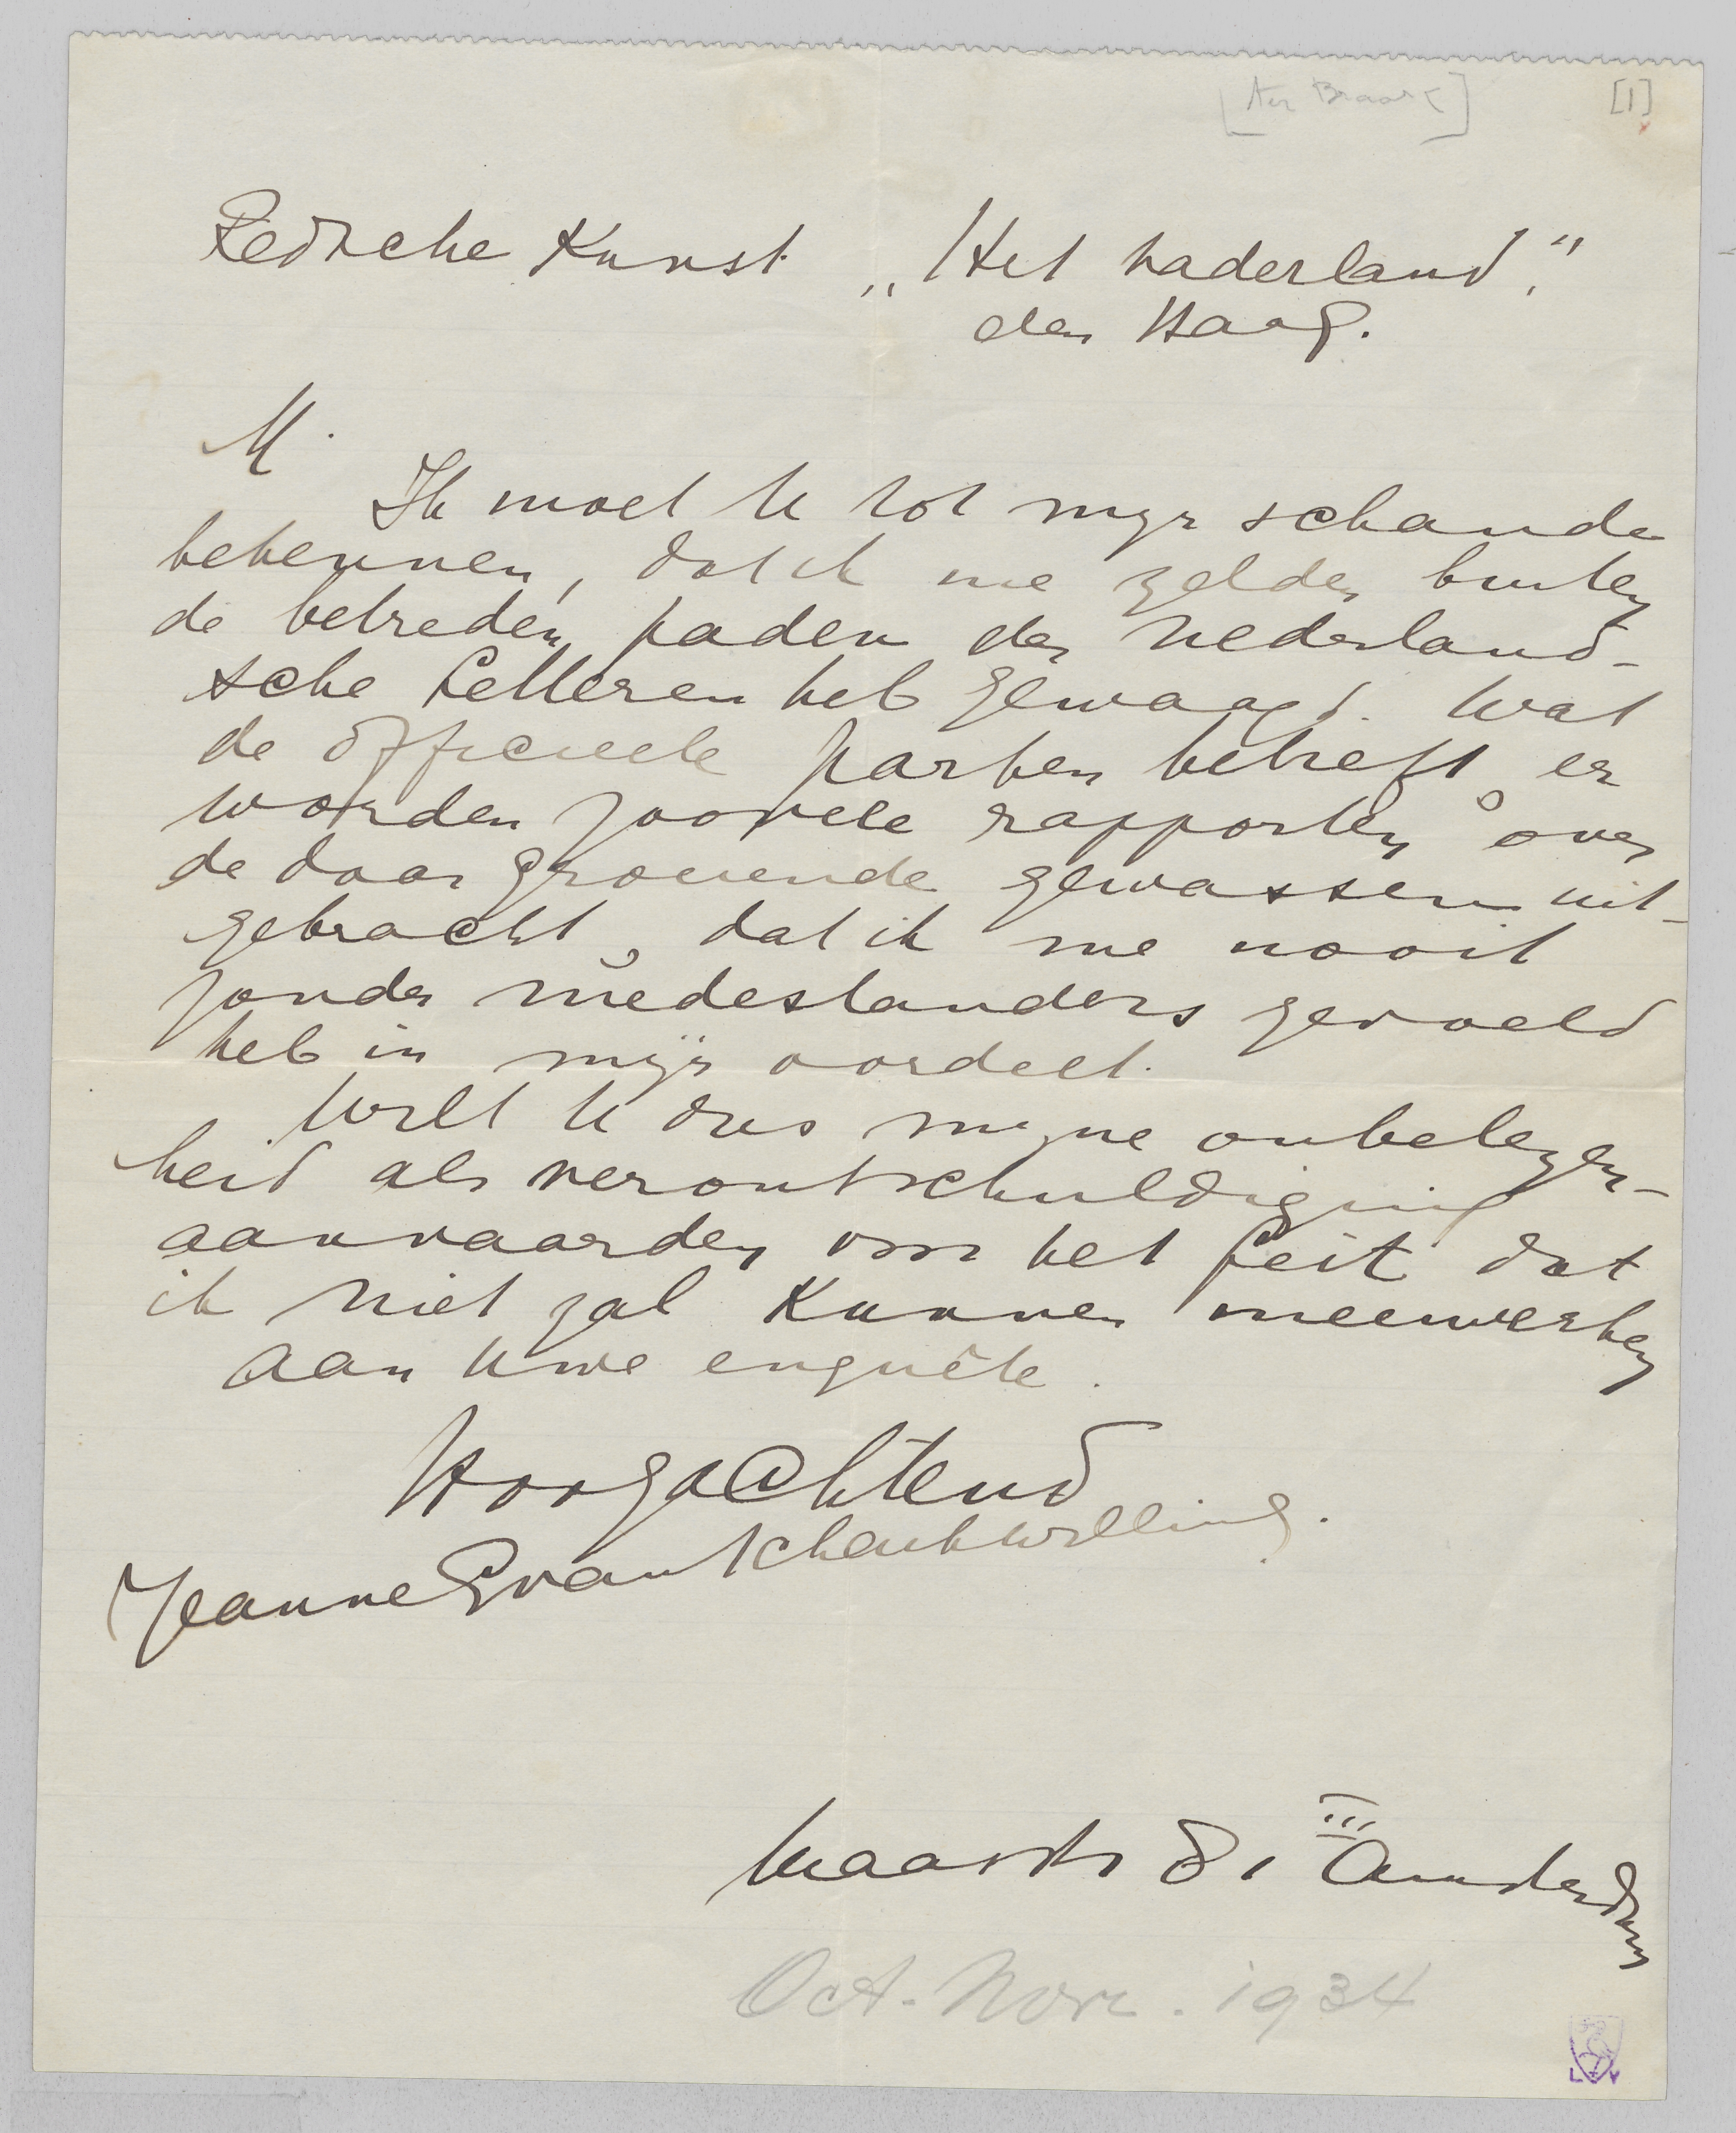 [Ter Braak]
[1]
Redsche Kunst „Het Vaderland."
den Haag.
M.
Ik moet U tot mijn schande
bekennen, dat ik me zelden buiten
de betreden paden der Nederland-
sche Letteren heb gewaagd. Wat
de officieele parken betreft, er
worden zoovele rapporten over
de daar groeiende gewassen uit-
gebracht, dat ik me nooit
zonder medestanders gevoeld
heb in mijn oordeel.
Wilt U dus mijne onbelezen-
heid als verontschuldiging
aanvaarden voor het feit dat
ik niet zal kunnen meewerken
aan Uwe enquête.
Hoogachtend
Jeanne van Schaik Willing.
Maasstr 81 III Amsterdam
Oct.-Nov. 1934